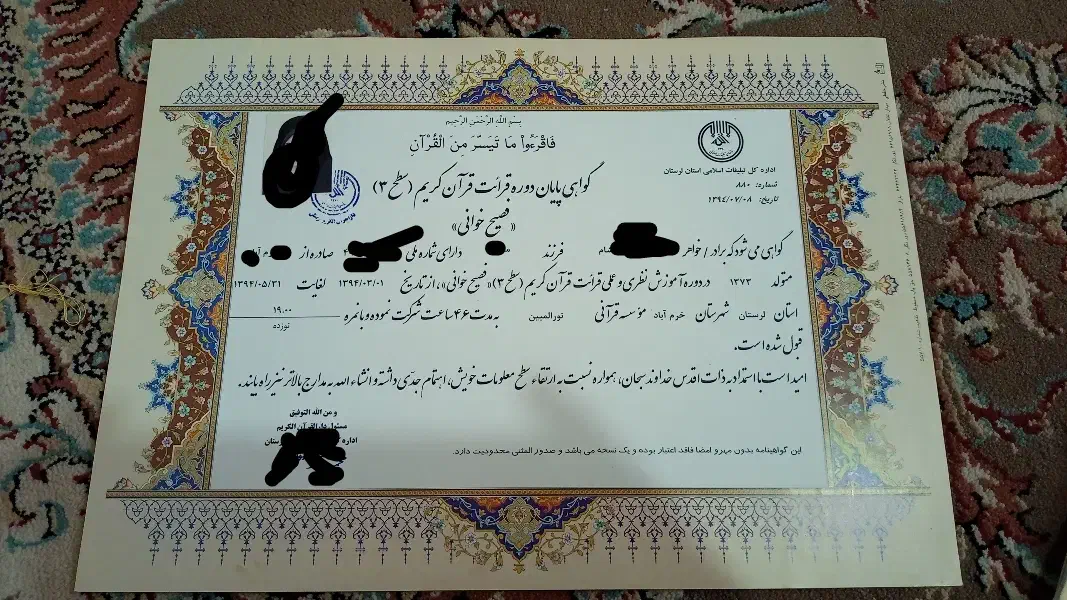 بِسْمِ اللَّهِ الرَّحْمَنِ الرَّحِيمِ
فَاقْرَءُواْ مَا تَيَسَّرَ مِنَ الْقُرْآنِ
اداره کل تبلیغات اسلامی استان لرستان
شماره: ۸۸۰
تاریخ: ۱۳۹٤/۰۷/۰۸
گواهی پایان دوره قرائت قرآن کریم (سطح ۳)
«فصیح خوانی»
گواهی می شود که برادر / خواهر فرزند دارای شماره ملی صادره از
متولد ۱۳۷۳ در دوره آموزش نظری و عملی قرائت قرآن کریم (سطح ۳) «فصیح خوانی»، از تاریخ ۱۳۹۴/۰۳/۰۱ لغایت ۱۳۹۴/۰۵/۳۱
استان لرستان شهرستان خرم آباد مؤسسه قرآنی نورالمبین به مدت ۴۶ ساعت شرکت نموده و با نمره ۱۹.۰۰
نوزده
قبول شده است.
امید است با استمداد به ذات اقدس خداوند سبحان، همواره نسبت به ارتقاء سطح معلومات خویش، اهتمام جدّی داشته و انشاء الله به مدارج بالاتر نیز راه یابند.
و من الله التوفیق
مسئول دارالقرآن الکریم
اداره
این گواهینامه بدون مهر و امضا فاقد اعتبار بوده و یک نسخه می باشد و صدور المثنی محدودیت دارد.